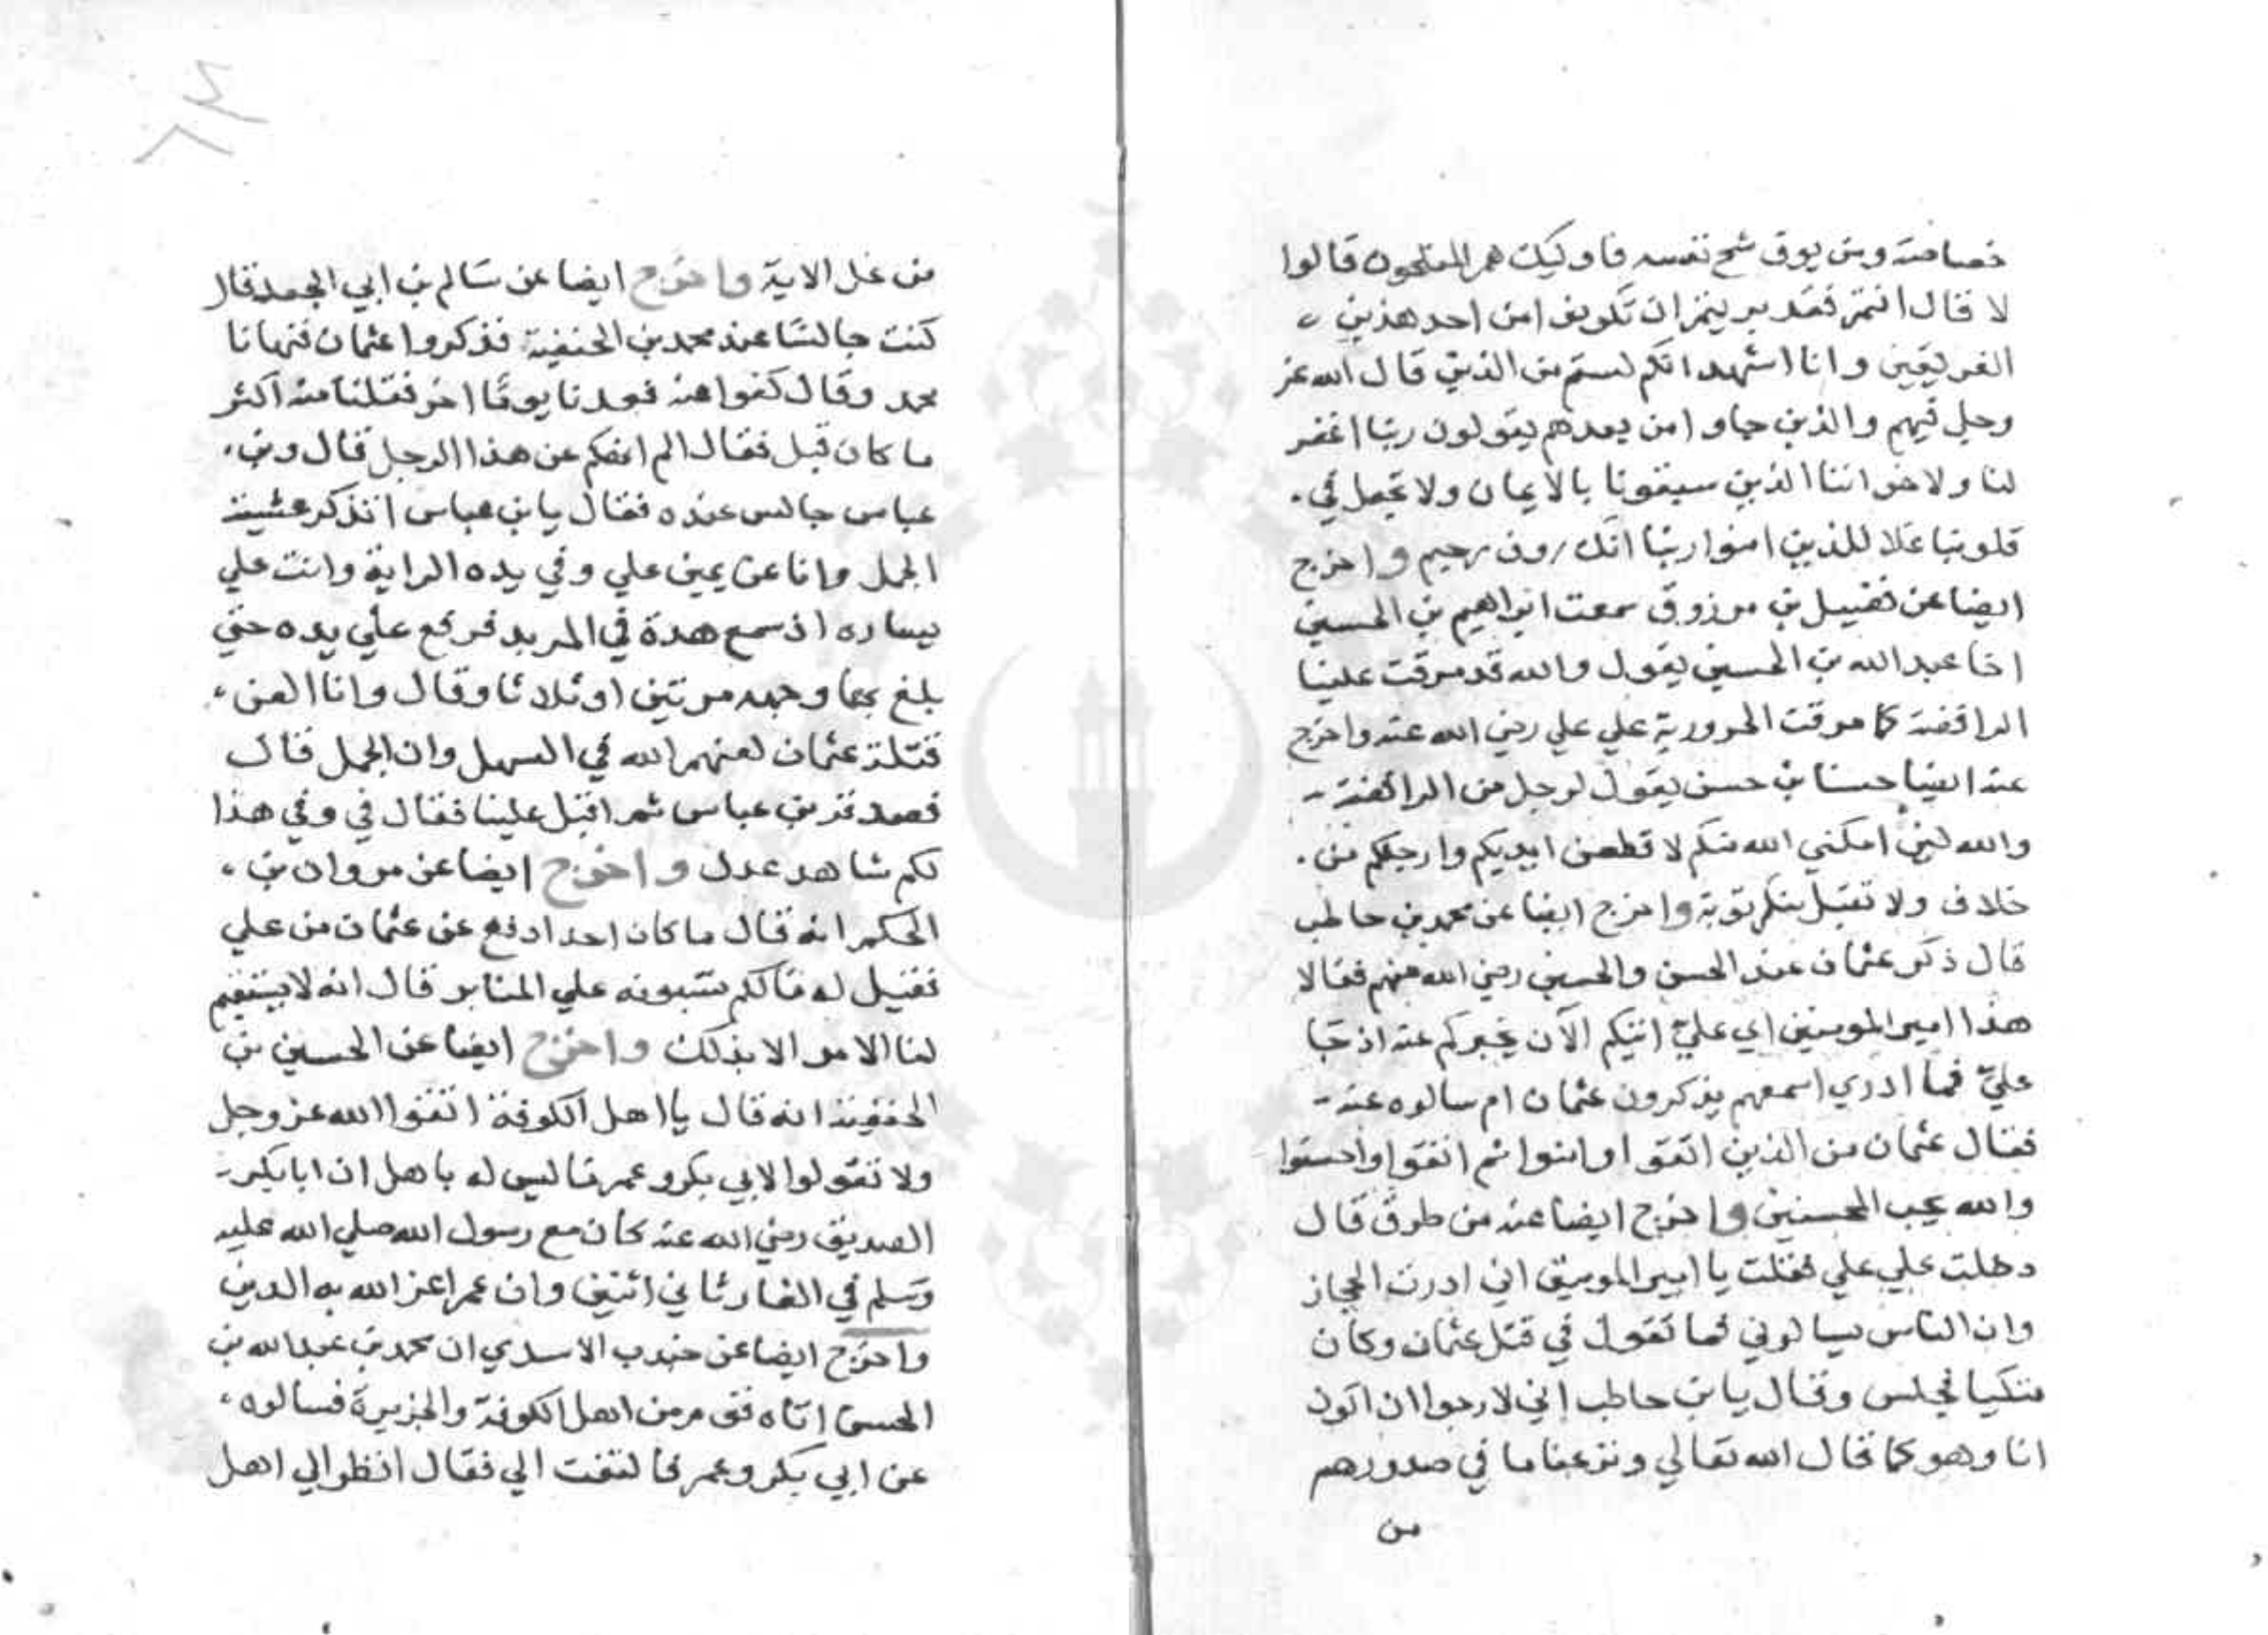 خصاصة ومن يوق شح نفسه فاوليك هم المفلحون قالوا
لا قال انتم فقد بريتم ان تكونوا من احد هذين
الفريقين وانا اشهد انكم لستم من الذين قال الله عز
وجل فيهم والذين جاوا من بعدهم يقولون ربنا اغفر
لنا ولاخواننا الذين سبقونا بالايمان ولا تجعل في
قلوبنا غلا للذين امنوا ربنا انك روف رحيم واخرج
ايضا عن فضيل بن مرزوق سمعت ابراهيم بن الحسين
اخا عبد الله بن الحسين يقول والله قد مرقت علينا
الرافضة كما مرقت الحرورية علي علي رضي الله عنه واخرج
عنه ايضا حسنا بن حسن يقول لرجل من الرافضة
والله لين امكني الله منكم لاقطعن ايديكم وارجلكم من
خلاف ولا نقبل منكم توبة واخرج ايضا عن محمد بن حاطب
قال ذكر عثمان عند الحسن والحسين رضي الله عنهم فقالا
هذا امير المومنين اي علي اتيكم الآن يخبركم عنه اذ جا
علي فما ادري اسمعهم يذكرون عثمان ام سالوه عنه
فقال عثمان من الذين اتقوا وامنوا ثم اتقوا واحسنوا
والله يحب المحسنين واخرج ايضا عنه من طرق قال
دخلت علي علي فقلت يا امير المومنين اني اردت الحجاز
وان الناس يسالوني فما تقول في قتل عثمان وكان
متكيا فجلس وقال يابن حاطب اني لارجوا ان اكون
انا وهو كما قال الله تعالي ونزعنا ما في صدورهم
من
٤٨
من غل الاية واخرج ايضا عن سالم بن ابي الجعد قال
كنت جالسا عند محمد بن الحنفية فذكروا عثمان فنهانا
محمد وقال كفوا عنه فعدنا يوما اخر فقلنا منه اكثر
ما كان قبل فقال الم انهكم عن هذا الرجل قال وبن
عباس جالس عنده فقال يابن عباس اتذكر عشية
الجمل وانا عن يمين علي وفي يده الراية وانت علي
يساره اذ سمع هدة في المربد فرفع علي يده حتي
بلغ بهما وجهه مرتين او ثلاثا وقال وانا العن
قتلة عثمان لعنهم الله في السهل وان الجمل قال
فصدقه بن عباس ثم اقبل علينا فقال في وفي هذا
لكم شاهد عدل واخرج ايضا عن مروان بن
الحكم انه قال ما كان احد ادفع عن عثمان من علي
فقيل له مالكم تسبونه علي المنابر قال انه لا يستقيم
لنا الامر الا بذلك واخرج ايضا عن الحسين بن
الحنفية انه قال يا اهل الكوفة اتقوا الله عز وجل
ولا تقولوا لابي بكر وعمر ما ليس له باهل ان ابا بكر
الصديق رضي الله عنه كان مع رسول الله صلي الله عليه
وسلم في الغار ثاني اثنين وان عمر اعز الله به الدين
واخرج ايضا عن جندب الاسدي ان محمد بن عبد الله بن
الحسن اتاه قوم من اهل الكوفة والجزيرة فسالوه
عن ابي بكر وعمر فالتفت الي فقال انظر الي اهل